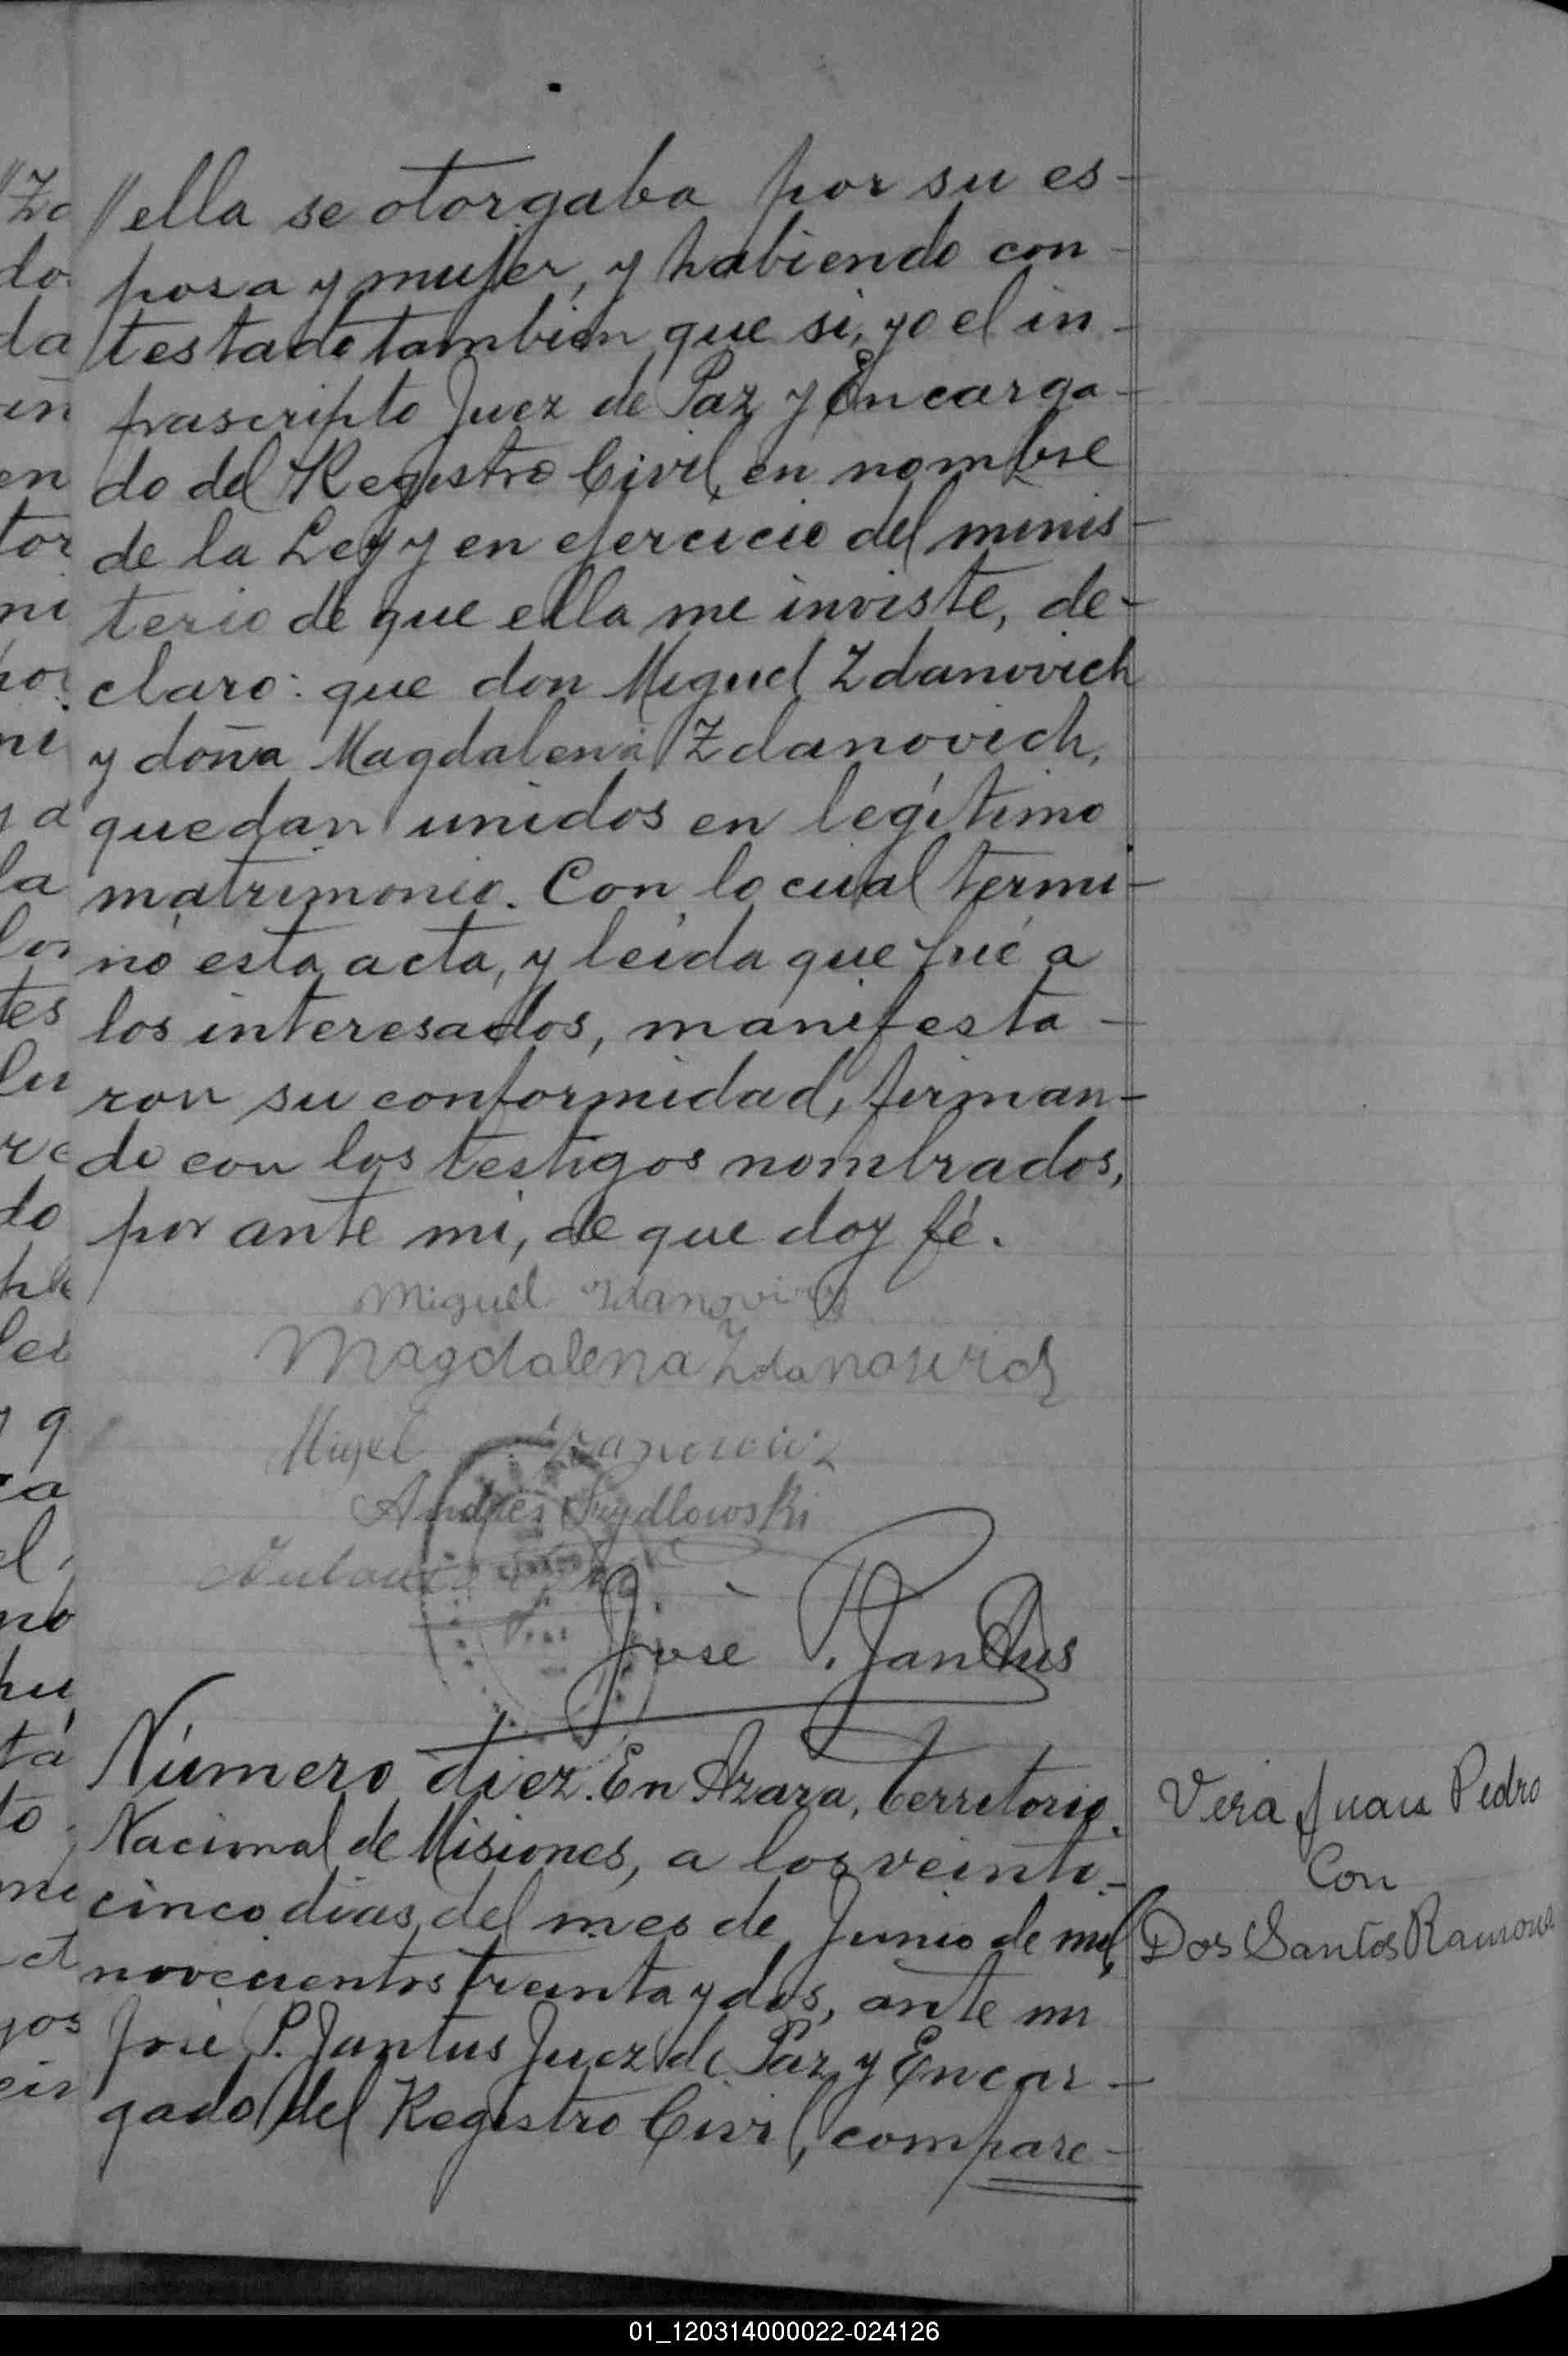 //ella se otorgaba por su es-
posa y mujer, y habiendo con-
testado tambien que si, yo el in-
frascripto Juez de Paz y Encarga-
do del Registro Civil, en nombre
de la Ley y en ejercicio del minis-
terio de que ella me inviste, de-
claro: que don Miguel Zdanovich
y doña Magdalena Zdanovich,
quedan unidos en legítimo
matrimonio. Con lo cual termi-
nó esta acta, y leída que fué a
los interesados, manifesta-
ron su conformidad, firman-
do con los testigos nombrados,
por ante mi, de que doy fé.
Miguel
Magdalena
Andres Sz​ydlowski
José P. Jantus
Número diez. En Azara, Territorio
Nacional de Misiones, a los veinti-
cinco dias del mes de Junio de mil
novecientos treinta y dos, ante mi
José P. Jantus Juez de Paz y Encar-
gado del Registro Civil, compare-
Vera Juan Pedro
Con
Dos Santos Ramona
01_120314000022-024126